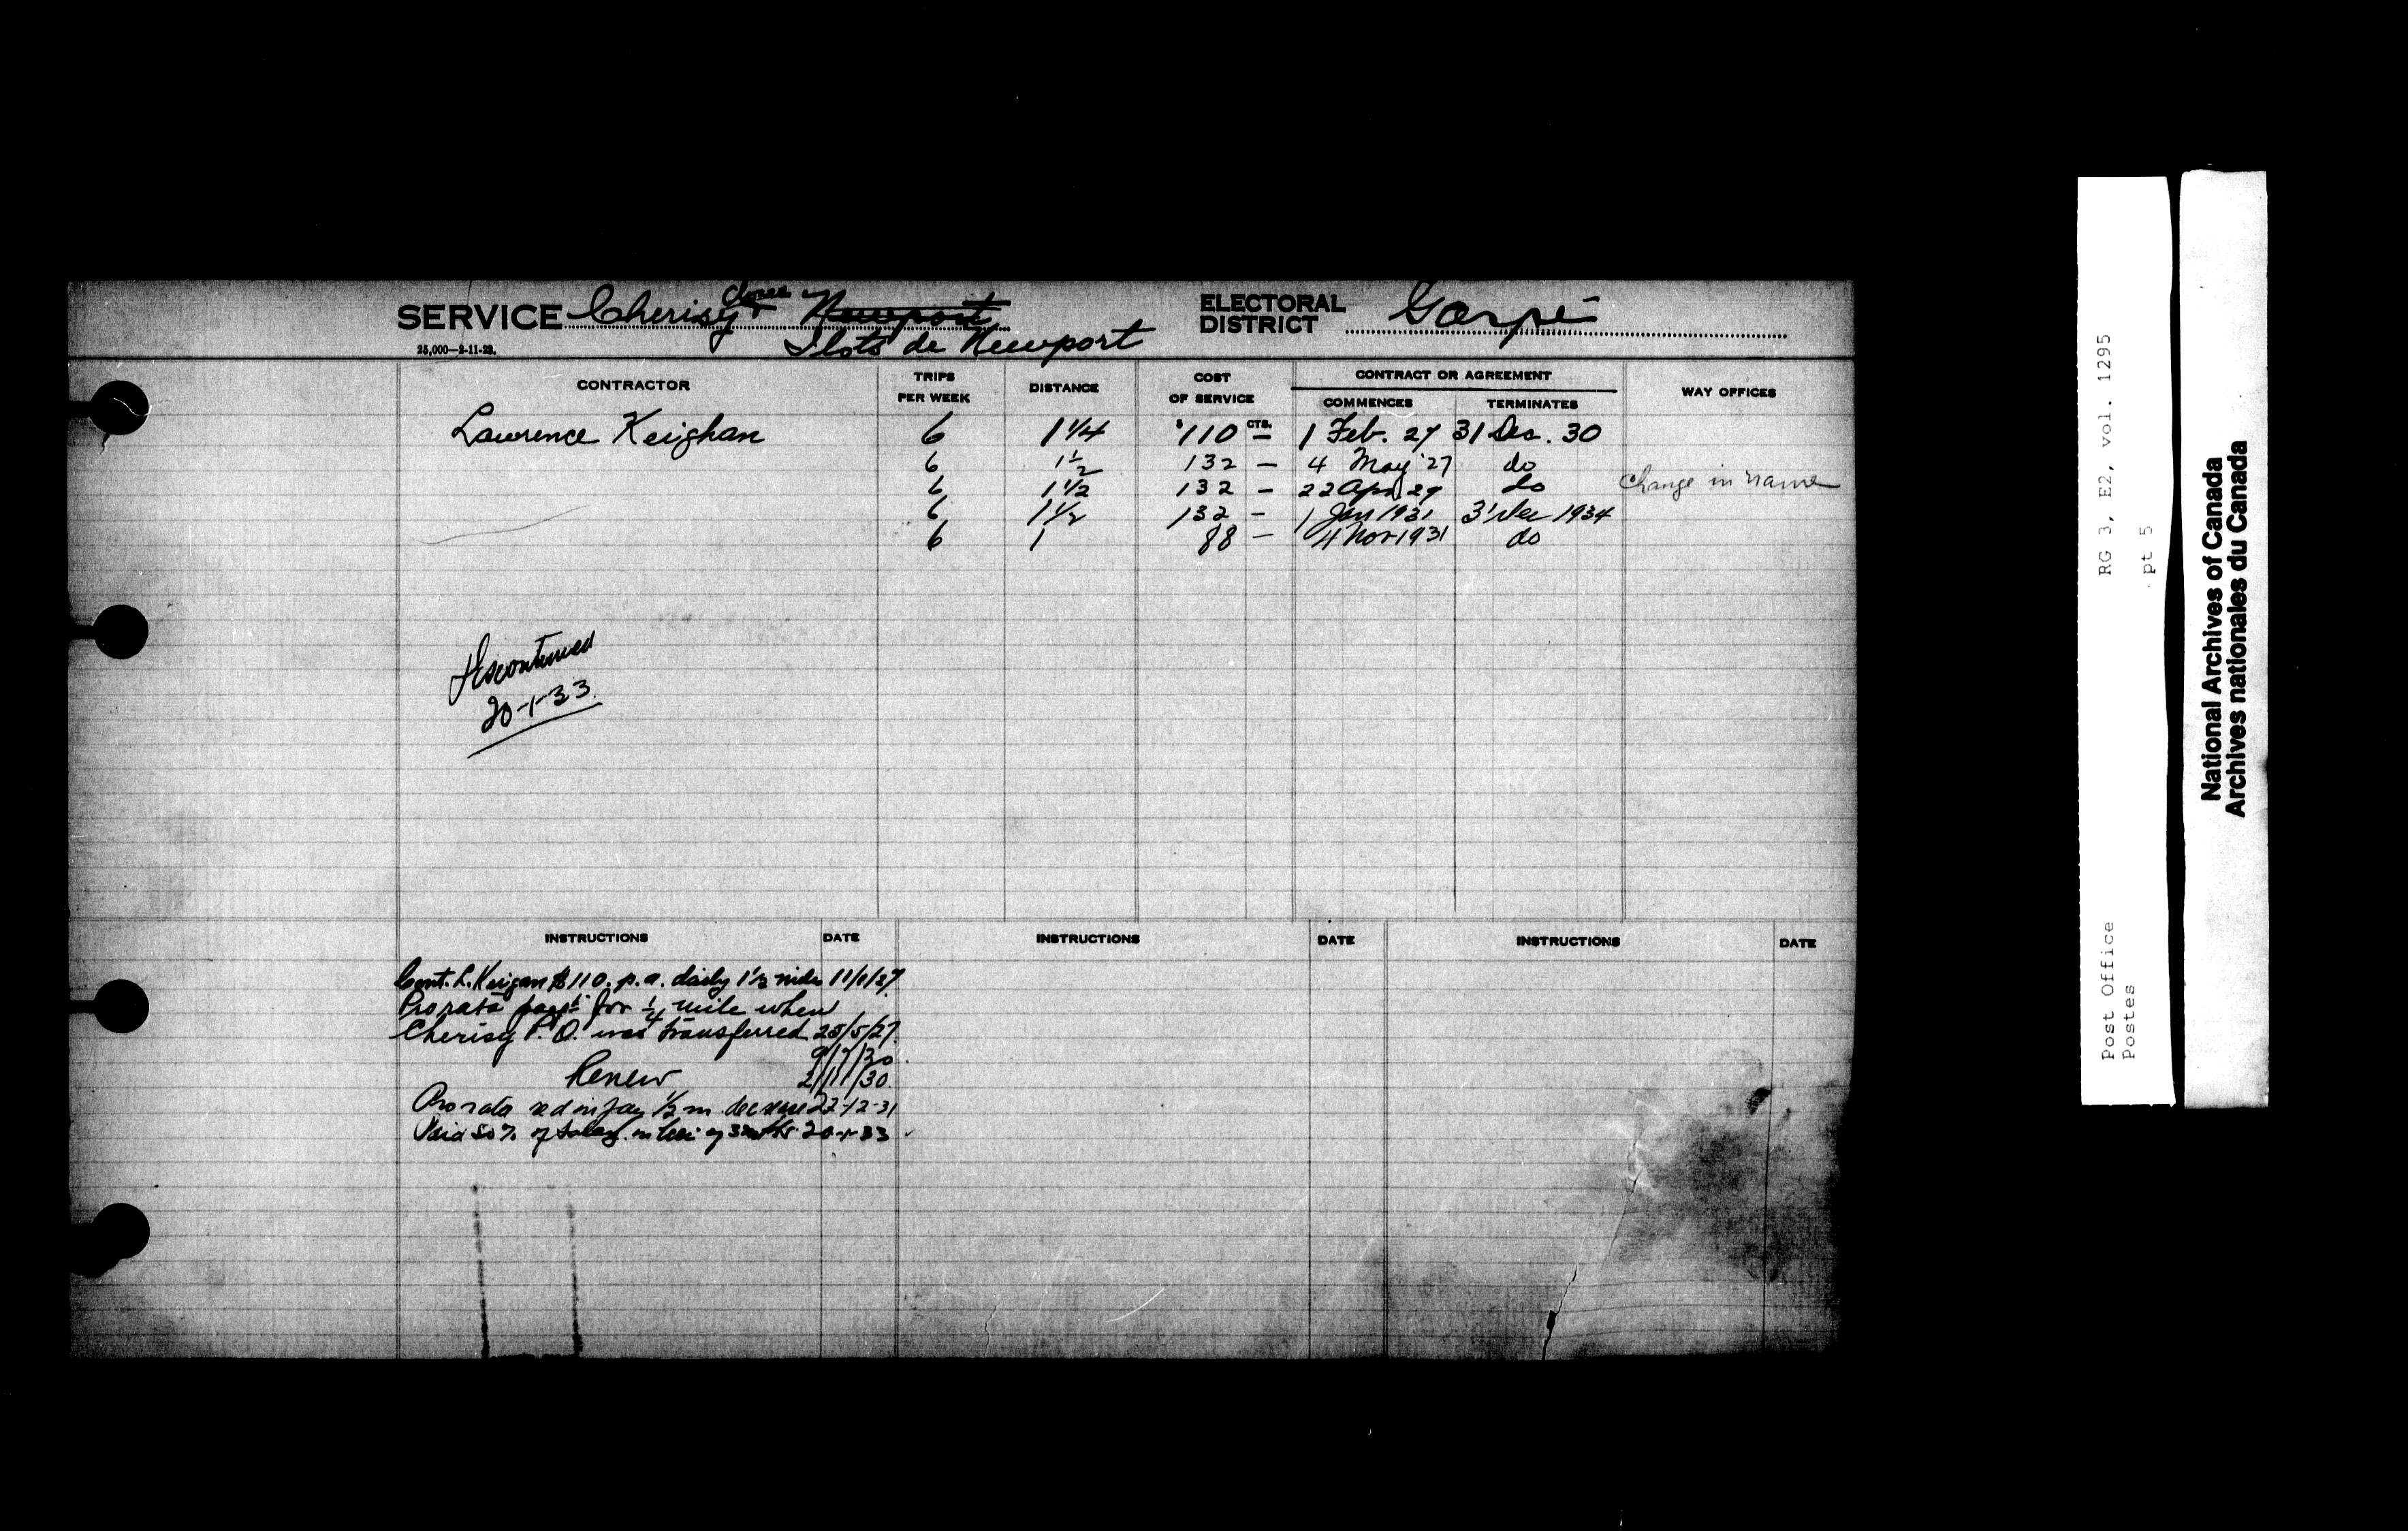 SERVICE Cherisy & Newport ELECTORAL DISTRICT Gaspé
25,000—2-11-22. Ilots de Newport
CONTRACTOR TRIPS PER WEEK DISTANCE COST OF SERVICE CONTRACT OR AGREEMENT COMMENCES TERMINATES WAY OFFICES
$ CTS.
Lawrence Keighan 6 1 1/4 110 — 1 Feb. 27 31 Dec. 30
6 1 1/2 132 — 4 May '27 do
6 1 1/2 132 — 22 Apr 29 do Change in name
6 1 1/2 132 — 1 Jan 1931 31 Dec 1934
6 1 88 — 4 Nov 1931 do
Discontinued
20-1-33.
INSTRUCTIONS DATE INSTRUCTIONS DATE INSTRUCTIONS DATE
Cont. L. Keigan $110. p.a. daily 1 1/2 miles 11/1/27.
Pro rata payt for 1/4 mile when
Cherisy P.O. was transferred 25/5/27.
9/7/30.
Renew 2/11/30.
Pro rata red in pay 1/2 m. decrease 22-12-31
Paid 50% of salary in lieu of 3 mths 20-1-33
RG 3, E2, vol. 1295
pt 5
Post Office
Postes
National Archives of Canada
Archives nationales du Canada